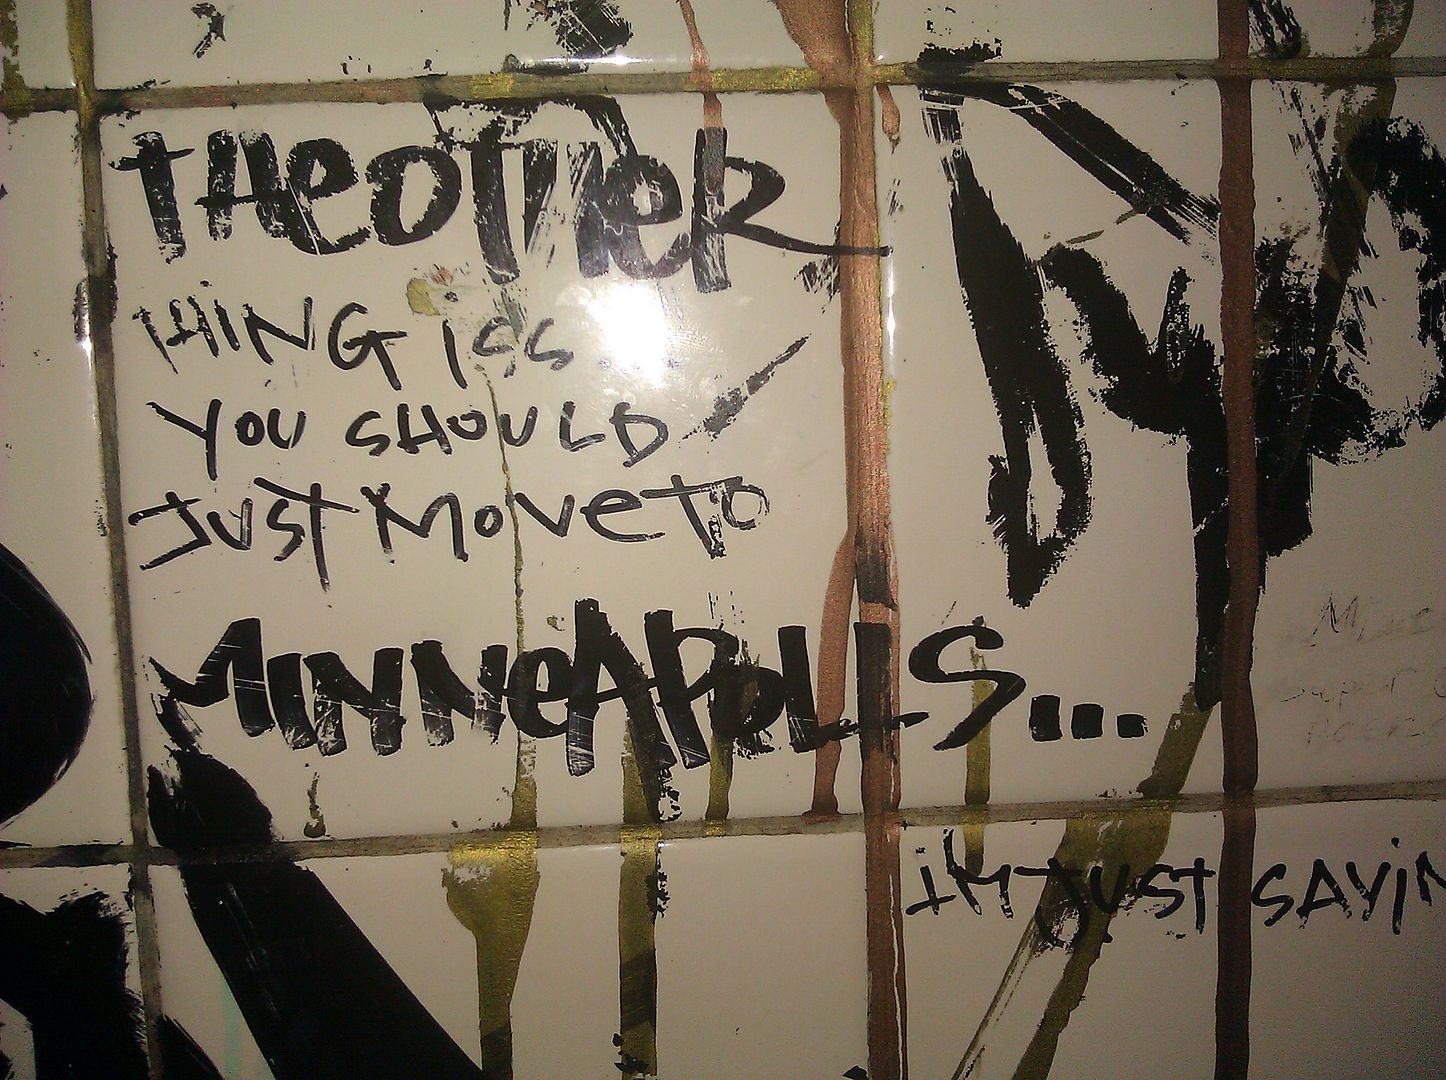 THeOTHeR
THING ISS
YOU SHOULD
JUST MOVE TO
MINNeAPOLIS...
I'M JUST SAYIN